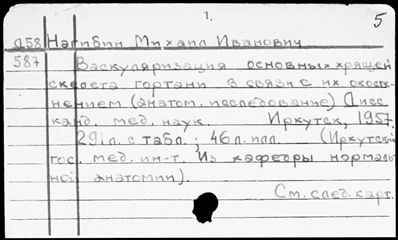 1.
5
Д58 Нагибин Михаил Иванович
587 Васкуляризация основных хрящей
скелета гортани в связи с их окосте-
нением (анатом. исследование) Дисс
канд. мед. наук. Иркутск, 1957.
291л. с табл.; 46л. илл. (Иркутский
гос. мед. ин-т. Из кафедры нормаль
ной анатомии).
См. след. карт.